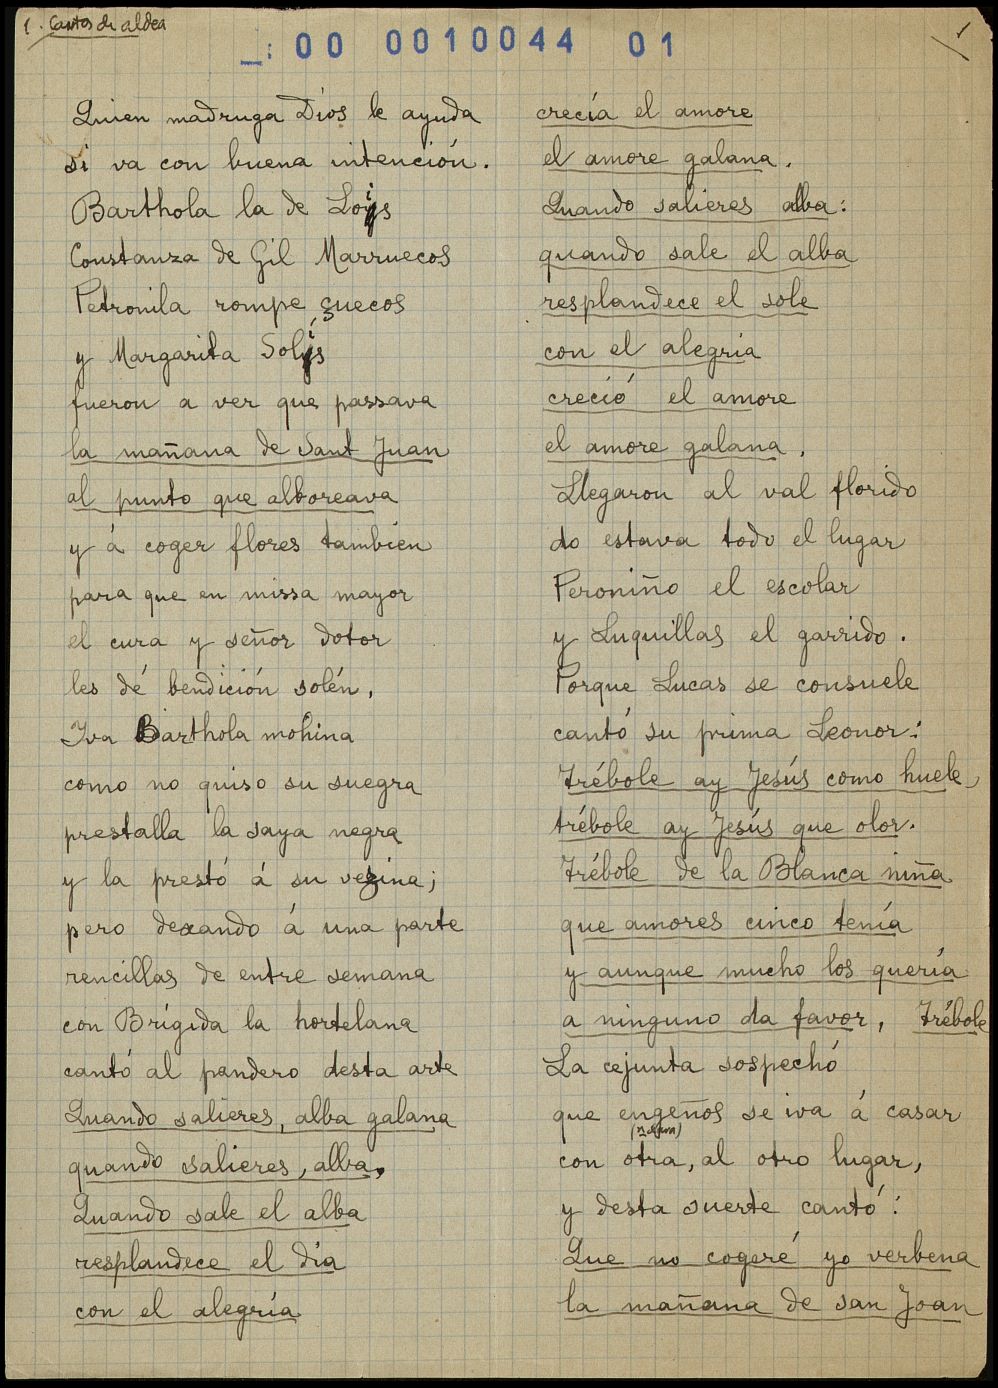 1. Cantos de aldea
00 0010044 01
1
Quien madruga Dios le ayuda
si va con buena intención.
Barthola la de Lois
Constanza de Gil Marruecos
Petronila rompe çuecos
y Margarita Solís
fueron a ver que passava
la mañana de Sant Juan
al punto que alboreava
y á coger flores tambien
para que en missa mayor
el cura y señor dotor
les dé bendición solén,
Iva Barthola mohina
como no quiso su suegra
prestalla la saya negra
y la prestó á su vezina;
pero dexando á una parte
rencillas de entre semana
con Brígida la hortelana
cantó al pandero desta arte
Quando salieres, alba galana
quando salieres, alba.
Quando sale el alba
resplandece el día
con el alegría
crecía el amore
el amore galana.
Quando salieres alba:
quando sale el alba
resplandece el sole
con el alegria
creció el amore
el amore galana.
Llegaron al val florido
do estava todo el lugar
Peroniño el escolar
y Luquillas el garrido.
Porque Lucas se consuele
cantó su prima Leonor:
trébole ay Jesús como huele,
trébole ay Jesús que olor.
trébole de la Blanca niña
que amores cinco tenía
y aunque mucho los quería
a ninguno da favor, trébole
La cejunta sospechó
que engeños se iva á casar
con otra, al otro lugar,
y desta suerte cantó:
Que no cogeré yo verbena
la mañana de san Joan